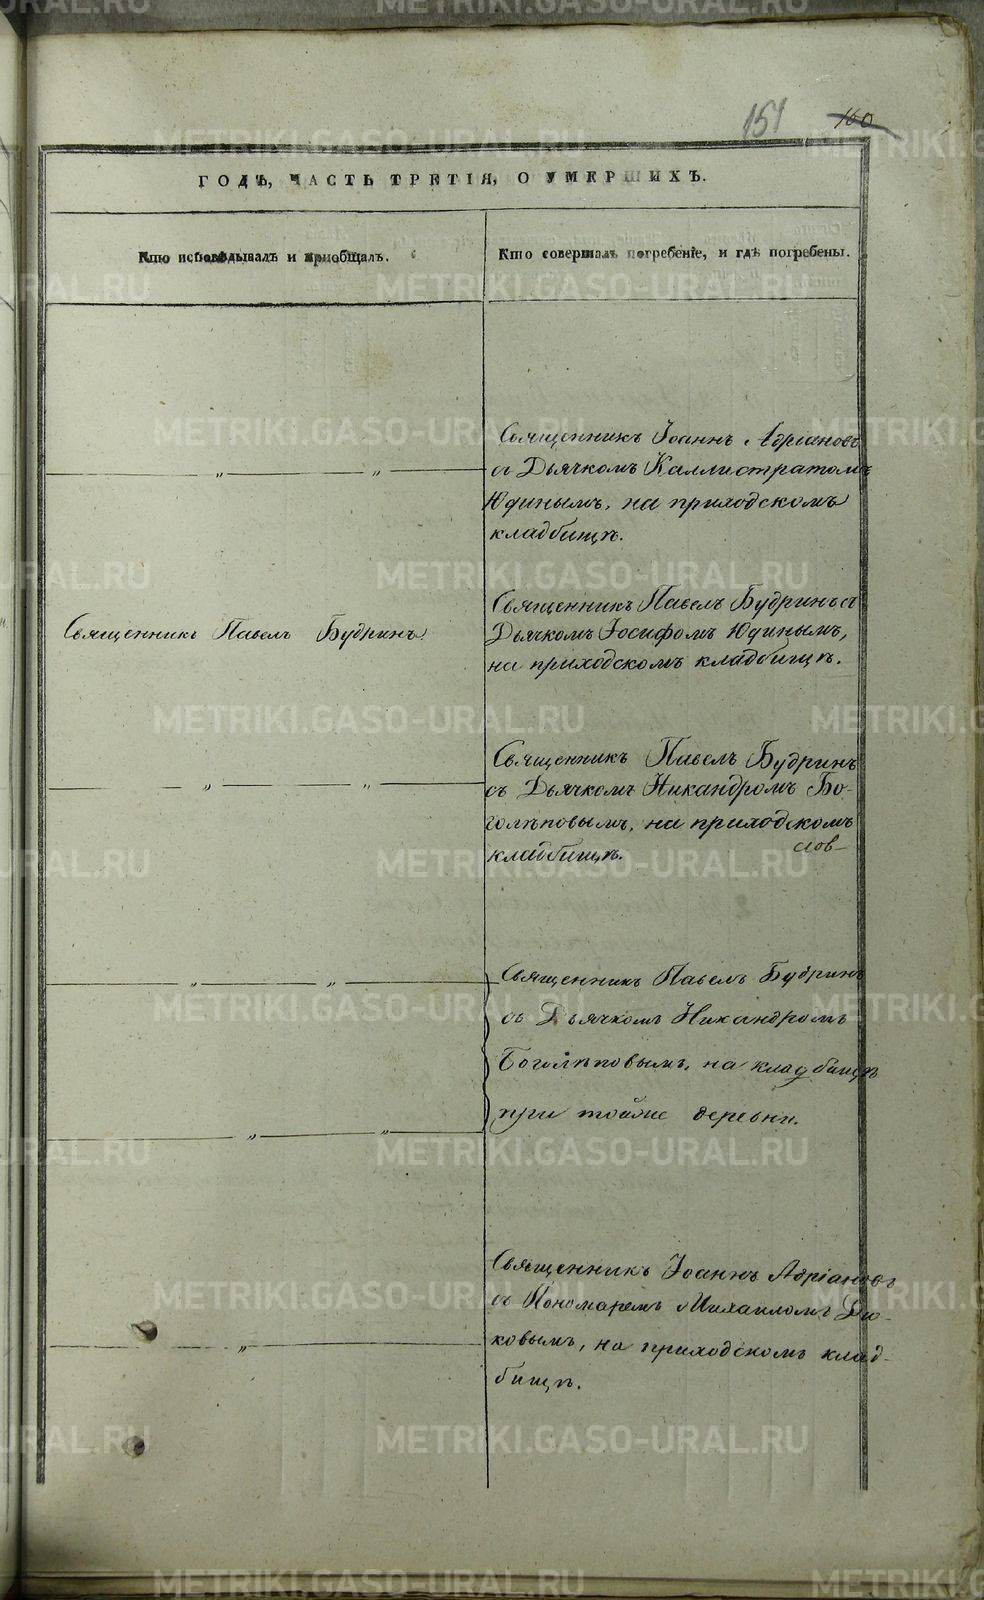 151 160
ГОДѢ, ЧАСТЬ ТРЕТІЯ, О УМЕРШИХЪ.
Кто исповѣдывалъ и пріобщалъ.
Кто совершалъ погребеніе, и гдѣ погребены.
Священникъ Іоаннъ Адріановъ
съ Дьячкомъ Каллистратомъ
Юдинымъ, на приходскомъ
кладбищѣ.
Священникъ Павелъ Будринъ
Священникъ Павелъ Будринъ съ
Дьячкомъ Іосифомъ Юдинымъ,
на приходскомъ кладбищѣ.
Священникъ Павелъ Будринъ
съ Дьячкомъ Никандромъ Бо-
голѣповымъ, на приходскомъ
кладбищѣ.
слов-
Священникъ Павелъ Будринъ
съ Дьячкомъ Никандромъ
Боголѣповымъ, на кладбищѣ
при тойже деревни.
Священникъ Іоаннъ Адріановъ
съ Пономаремъ Михаиломъ Дю-
ковымъ, на приходскомъ клад-
бищѣ.
METRIKI.GASO-URAL.RU